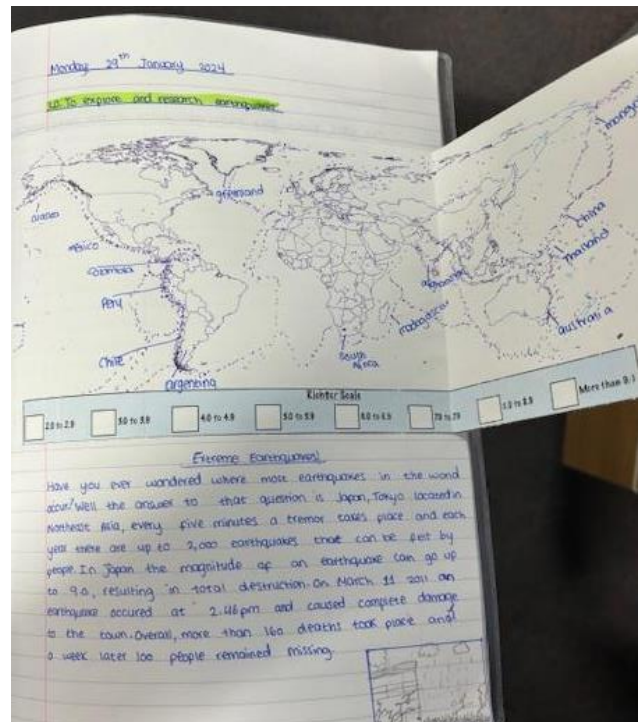 Monday 29th January 2024
L.O To explore and research earthquakes
mongo
alaska
greenland
China
mexico
Thailand
Colombia
Peru
madagascar
australia
Chile
South Africa
argentina
Richter Scale
2.0 to 2.9
3.0 to 3.9
4.0 to 4.9
5.0 to 5.9
6.0 to 6.9
7.0 to 7.9
8.0 to 8.9
More than 9.1
Extreme Earthquakes!
Have you ever wondered where most earthquakes in the world
occur? Well the answer to that question is Japan, Tokyo located in
Northeast Asia, every five minutes a tremor takes place and each
year there are up to 2,000 earthquakes that can be felt by
people. In Japan the magnitude of an earthquake can go up
to 9.0, resulting in total destruction. On March 11 2011 an
earthquake occured at 2:46pm and caused complete damage
to the town. Overall, more than 160 deaths took place and
a week later 100 people remained missing